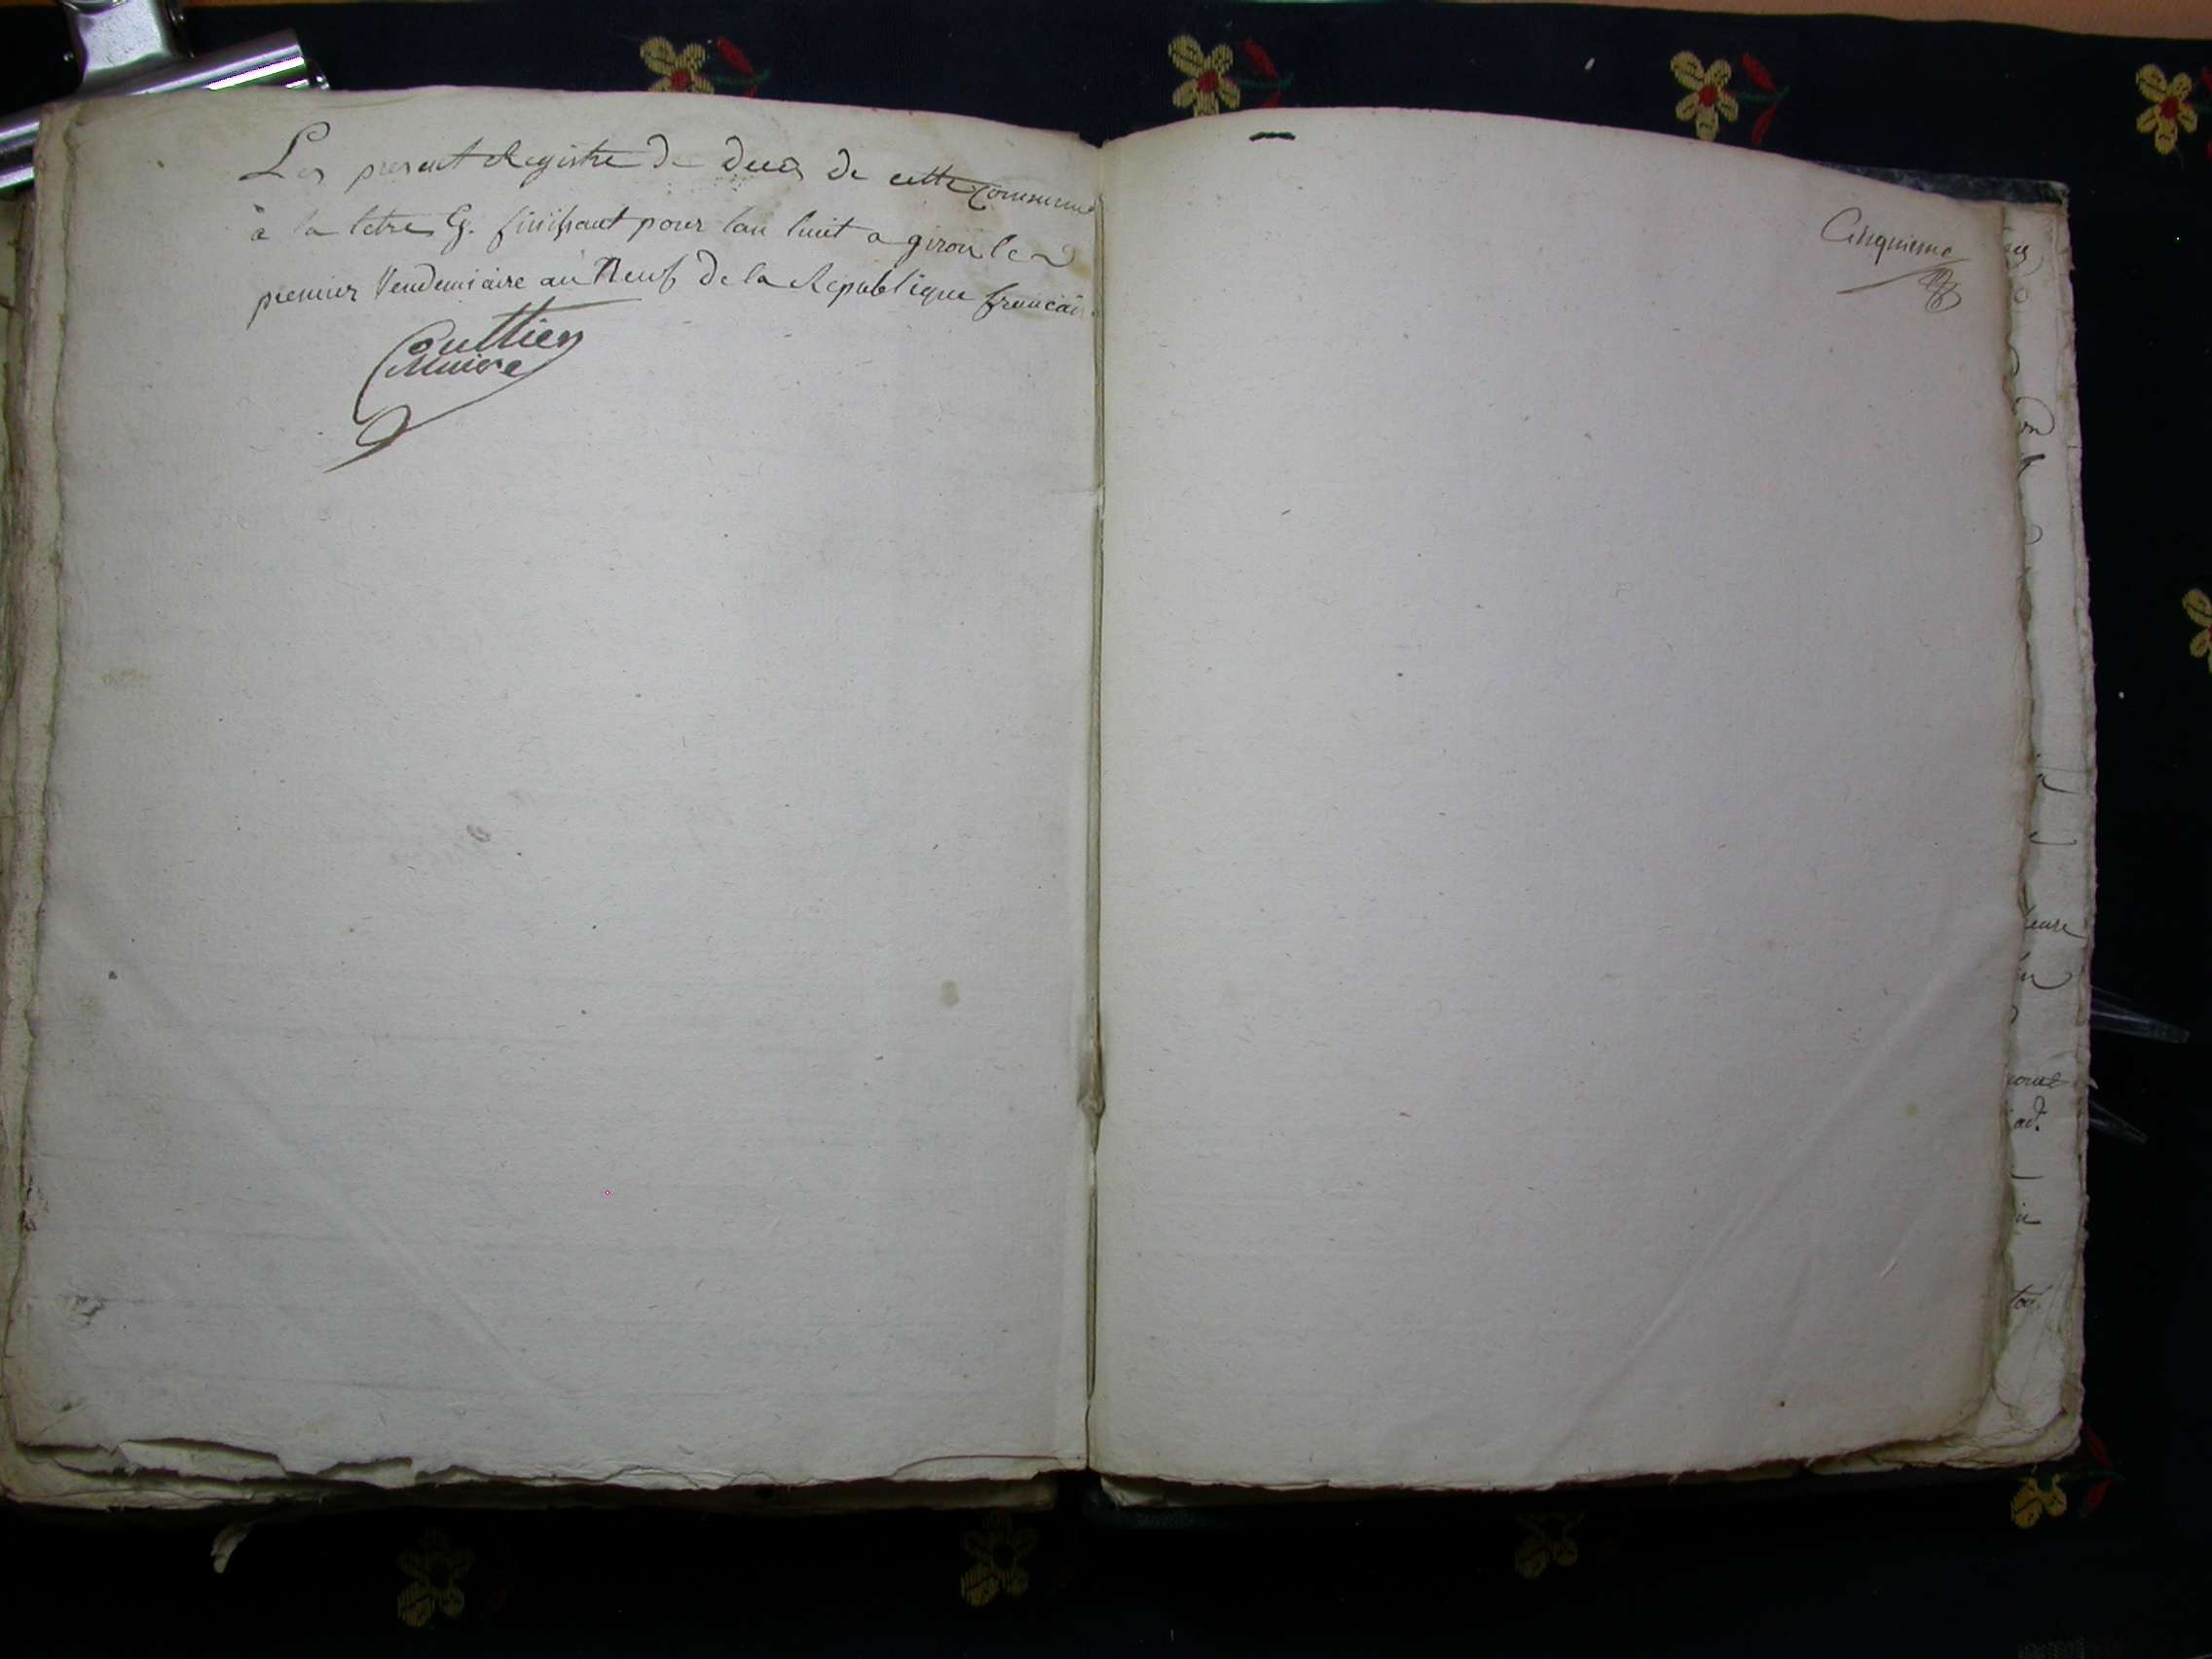 Les present Registre de decès de cette Commune
à la letre G. finissant pour lan huit a giron le
premier Vendemiaire an Neuf de la Republique francais
Gouttier
Maire
Cinquieme
leure
ad.